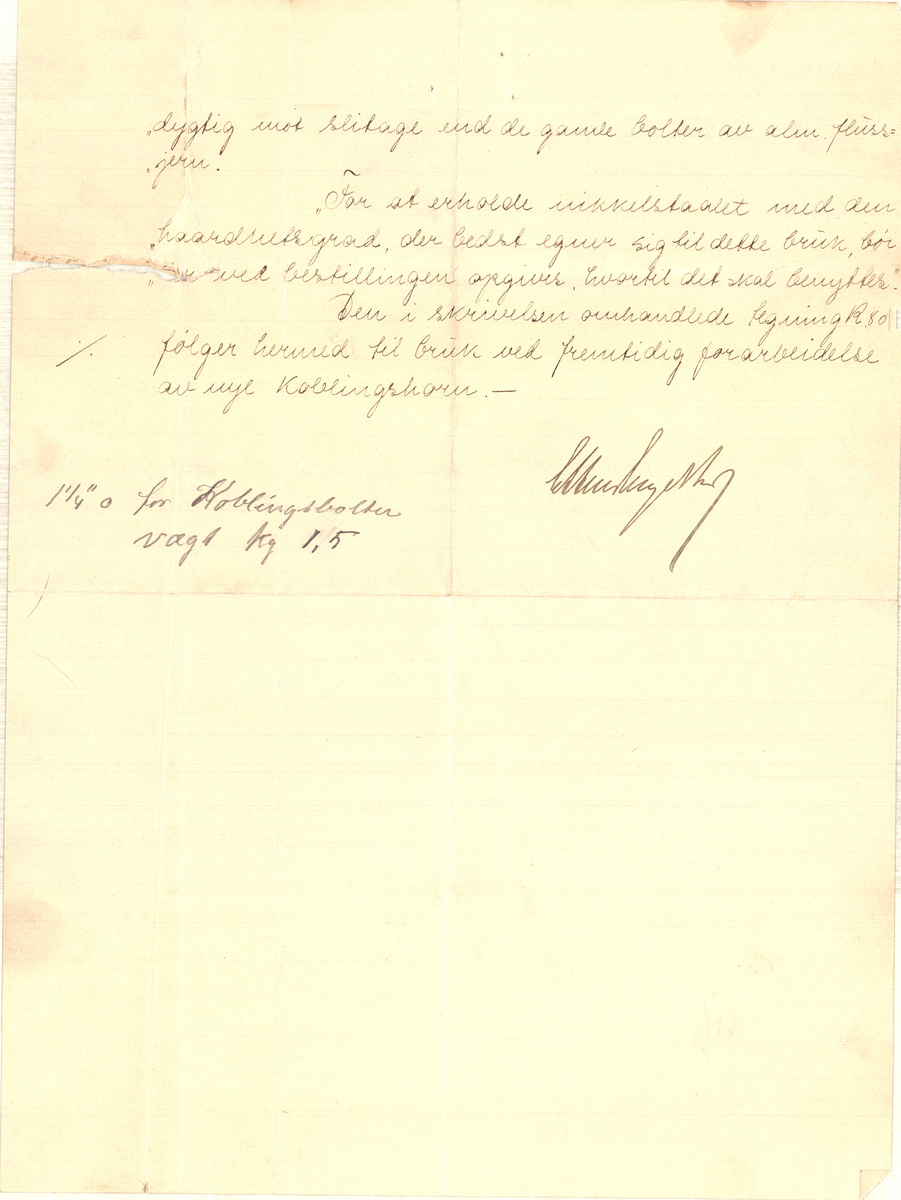 „dygtig mot slitage end de gamle bolter av alm. fluss=
„jern.
„For at erholde nikkelstaalet med den
„haardhetsgrad, der bedst egner sig til dette bruk, bør
ved bestillingen opgives, hvortil det skal benyttes“.
Den i skrivelsen omhandlede tegning R.80
./. følger hermed til bruk ved fremtidig forarbeidelse
av nye Koblingshorn. —
1¼" o for Koblingsbolter
vægt kg 1,5